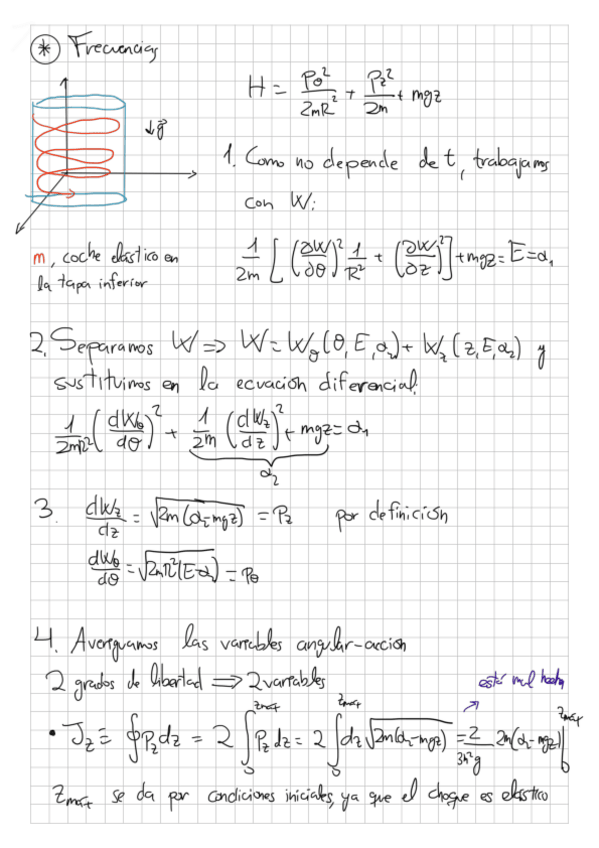 * Frecuencias
H = Pθ²/2mR² + Pz²/2m + mgz
↓g⃗
1. Como no depende de t, trabajamos
con W:
m, coche elástico en
la tapa inferior
1/2m [ (∂W/∂θ)² 1/R² + (∂W/∂z)² ] + mgz = E = α₁
2. Separamos W ⇒ W = Wθ(θ, E, α₂) + Wz(z, E, α₂) y
sustituimos en la ecuación diferencial:
1/2mR² (dWθ/dθ)² + 1/2m (dWz/dz)² + mgz = α₁
α₂
3. dWz/dz = √2m(α₂-mgz) = Pz por definición
dWθ/dθ = √2mR²(E-α₂) = Pθ
4. Averiguamos las variables angular-acción
2 grados de libertad ⇒ 2 variables
esté mal hecha
• Jz ≡ ∮Pzdz = 2 ∫₀^zmáx Pz dz = 2 ∫₀^zmáx dz √2m(α₂-mgz) = 2/3m²g 2m(α₂-mgz)|₀^zmáx
zmáx se da por condiciones iniciales, ya que el choque es elástico